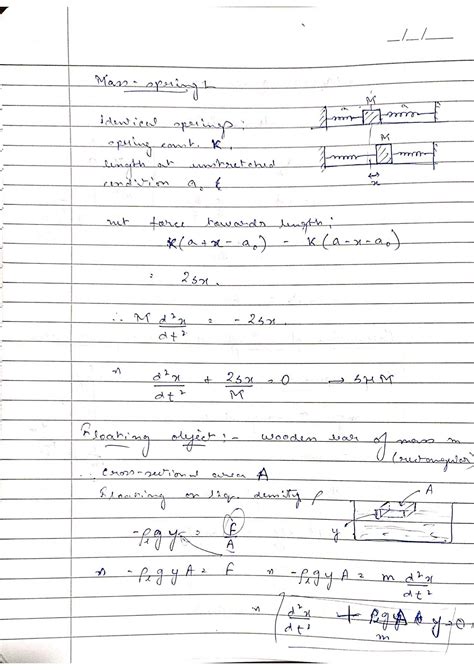 _/_/__
Mass-spring
M
a a
Identical springs:
spring const. K,
M
length at unstretched
condition a₀
x
net force towards length;
K(a+x-a₀) - K(a-x-a₀)
: 2sx.
∴ M d²x/dt² = -2sx.
d²x/dt² + 2sx/M = 0 → SHM
Floating object:- wooden bar of mass m
(rectangular)
cross-sectional area A
Floating on liq. density ρ
A
y
-ρₗgy = F/A
-ρₗgyA = F -ρₗgyA = m d²x/dt²
d²x/dt² + ρₗgA/m y = 0